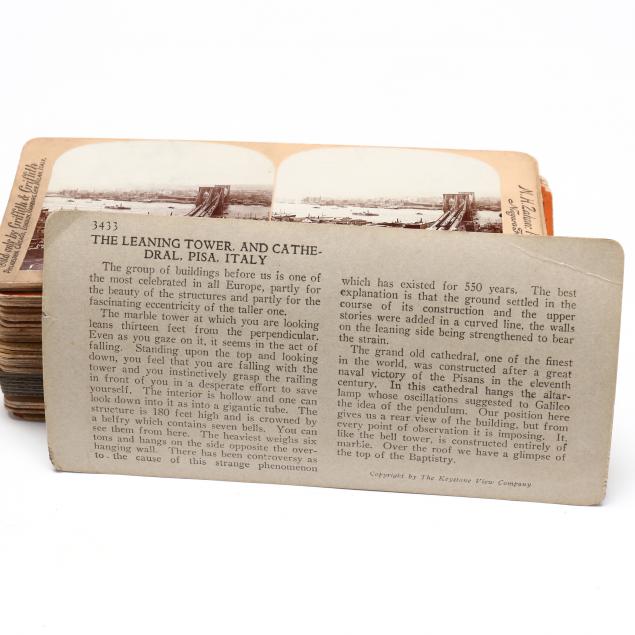 Sold only by Griffith & Griffith
3433
THE LEANING TOWER, AND CATHE-
DRAL, PISA, ITALY
The group of buildings before us is one of
the most celebrated in all Europe, partly for
the beauty of the structures and partly for the
fascinating eccentricity of the taller one.
The marble tower at which you are looking
leans thirteen feet from the perpendicular.
Even as you gaze on it, it seems in the act of
falling. Standing upon the top and looking
down, you feel that you are falling with the
tower and you instinctively grasp the railing
in front of you in a desperate effort to save
yourself. The interior is hollow and one can
look down into it as into a gigantic tube. The
structure is 180 feet high and is crowned by
a belfry which contains seven bells. You can
see them from here. The heaviest weighs six
tons and hangs on the side opposite the over-
hanging wall. There has been controversy as
to the cause of this strange phenomenon
which has existed for 550 years. The best
explanation is that the ground settled in the
course of its construction and the upper
stories were added in a curved line, the walls
on the leaning side being strengthened to bear
the strain.
The grand old cathedral, one of the finest
in the world, was constructed after a great
naval victory of the Pisans in the eleventh
century. In this cathedral hangs the altar-
lamp whose oscillations suggested to Galileo
the idea of the pendulum. Our position here
gives us a rear view of the building, but from
every point of observation it is imposing. It,
like the bell tower, is constructed entirely of
marble. Over the roof we have a glimpse of
the top of the Baptistry.
Copyright by The Keystone View Company